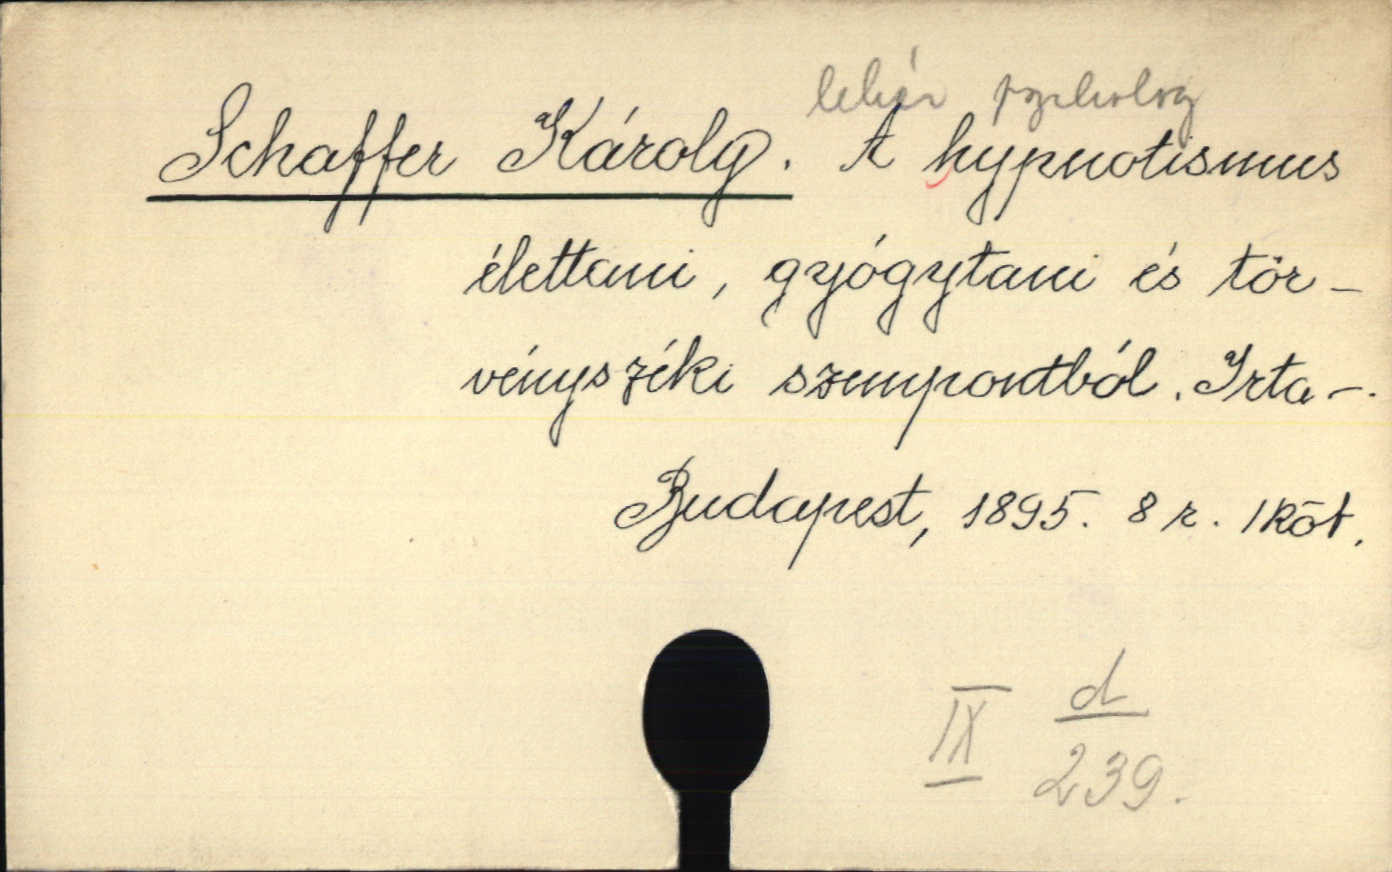 Schaffer Károly. A hypnotismus
élettani, gyógytani és tör-
vényszéki szempontból. Irta -.
Budapest, 1895. 8 r. 1 köt.
IX d
239.